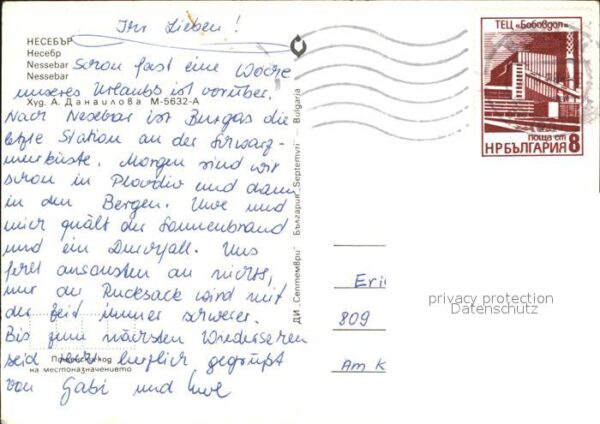 Ihr Lieben!
НЕСЕБЪР
Несебр
Nessebar
Nessebar
Schon fast eine Woche
unseres Urlaubs ist vorüber.
Худ. А. Данаилова М-5632-А
Nach Nesebar ist Burgas die
letzte Station an der Schwarz-
meerküste. Morgen sind wir
schon in Plovdiv und dann
in den Bergen. Uwe und
mich quält der Sonnenbrand
und ein Durchfall. Uns
fehlt ansonsten an nichts,
nur der Rucksack wird mit
der Zeit immer schwerer.
Bis zum nächsten Wiedersehen
seid herzlich gegrüßt
von Gabi und Uwe
на местоназначението
ДИ „Септември" България "Septemvri" - Bulgaria
ТЕЦ „Бобовдол"
поща ст
НР БЪЛГАРИЯ 8
Eri
809
Am K
privacy protection
Datenschutz